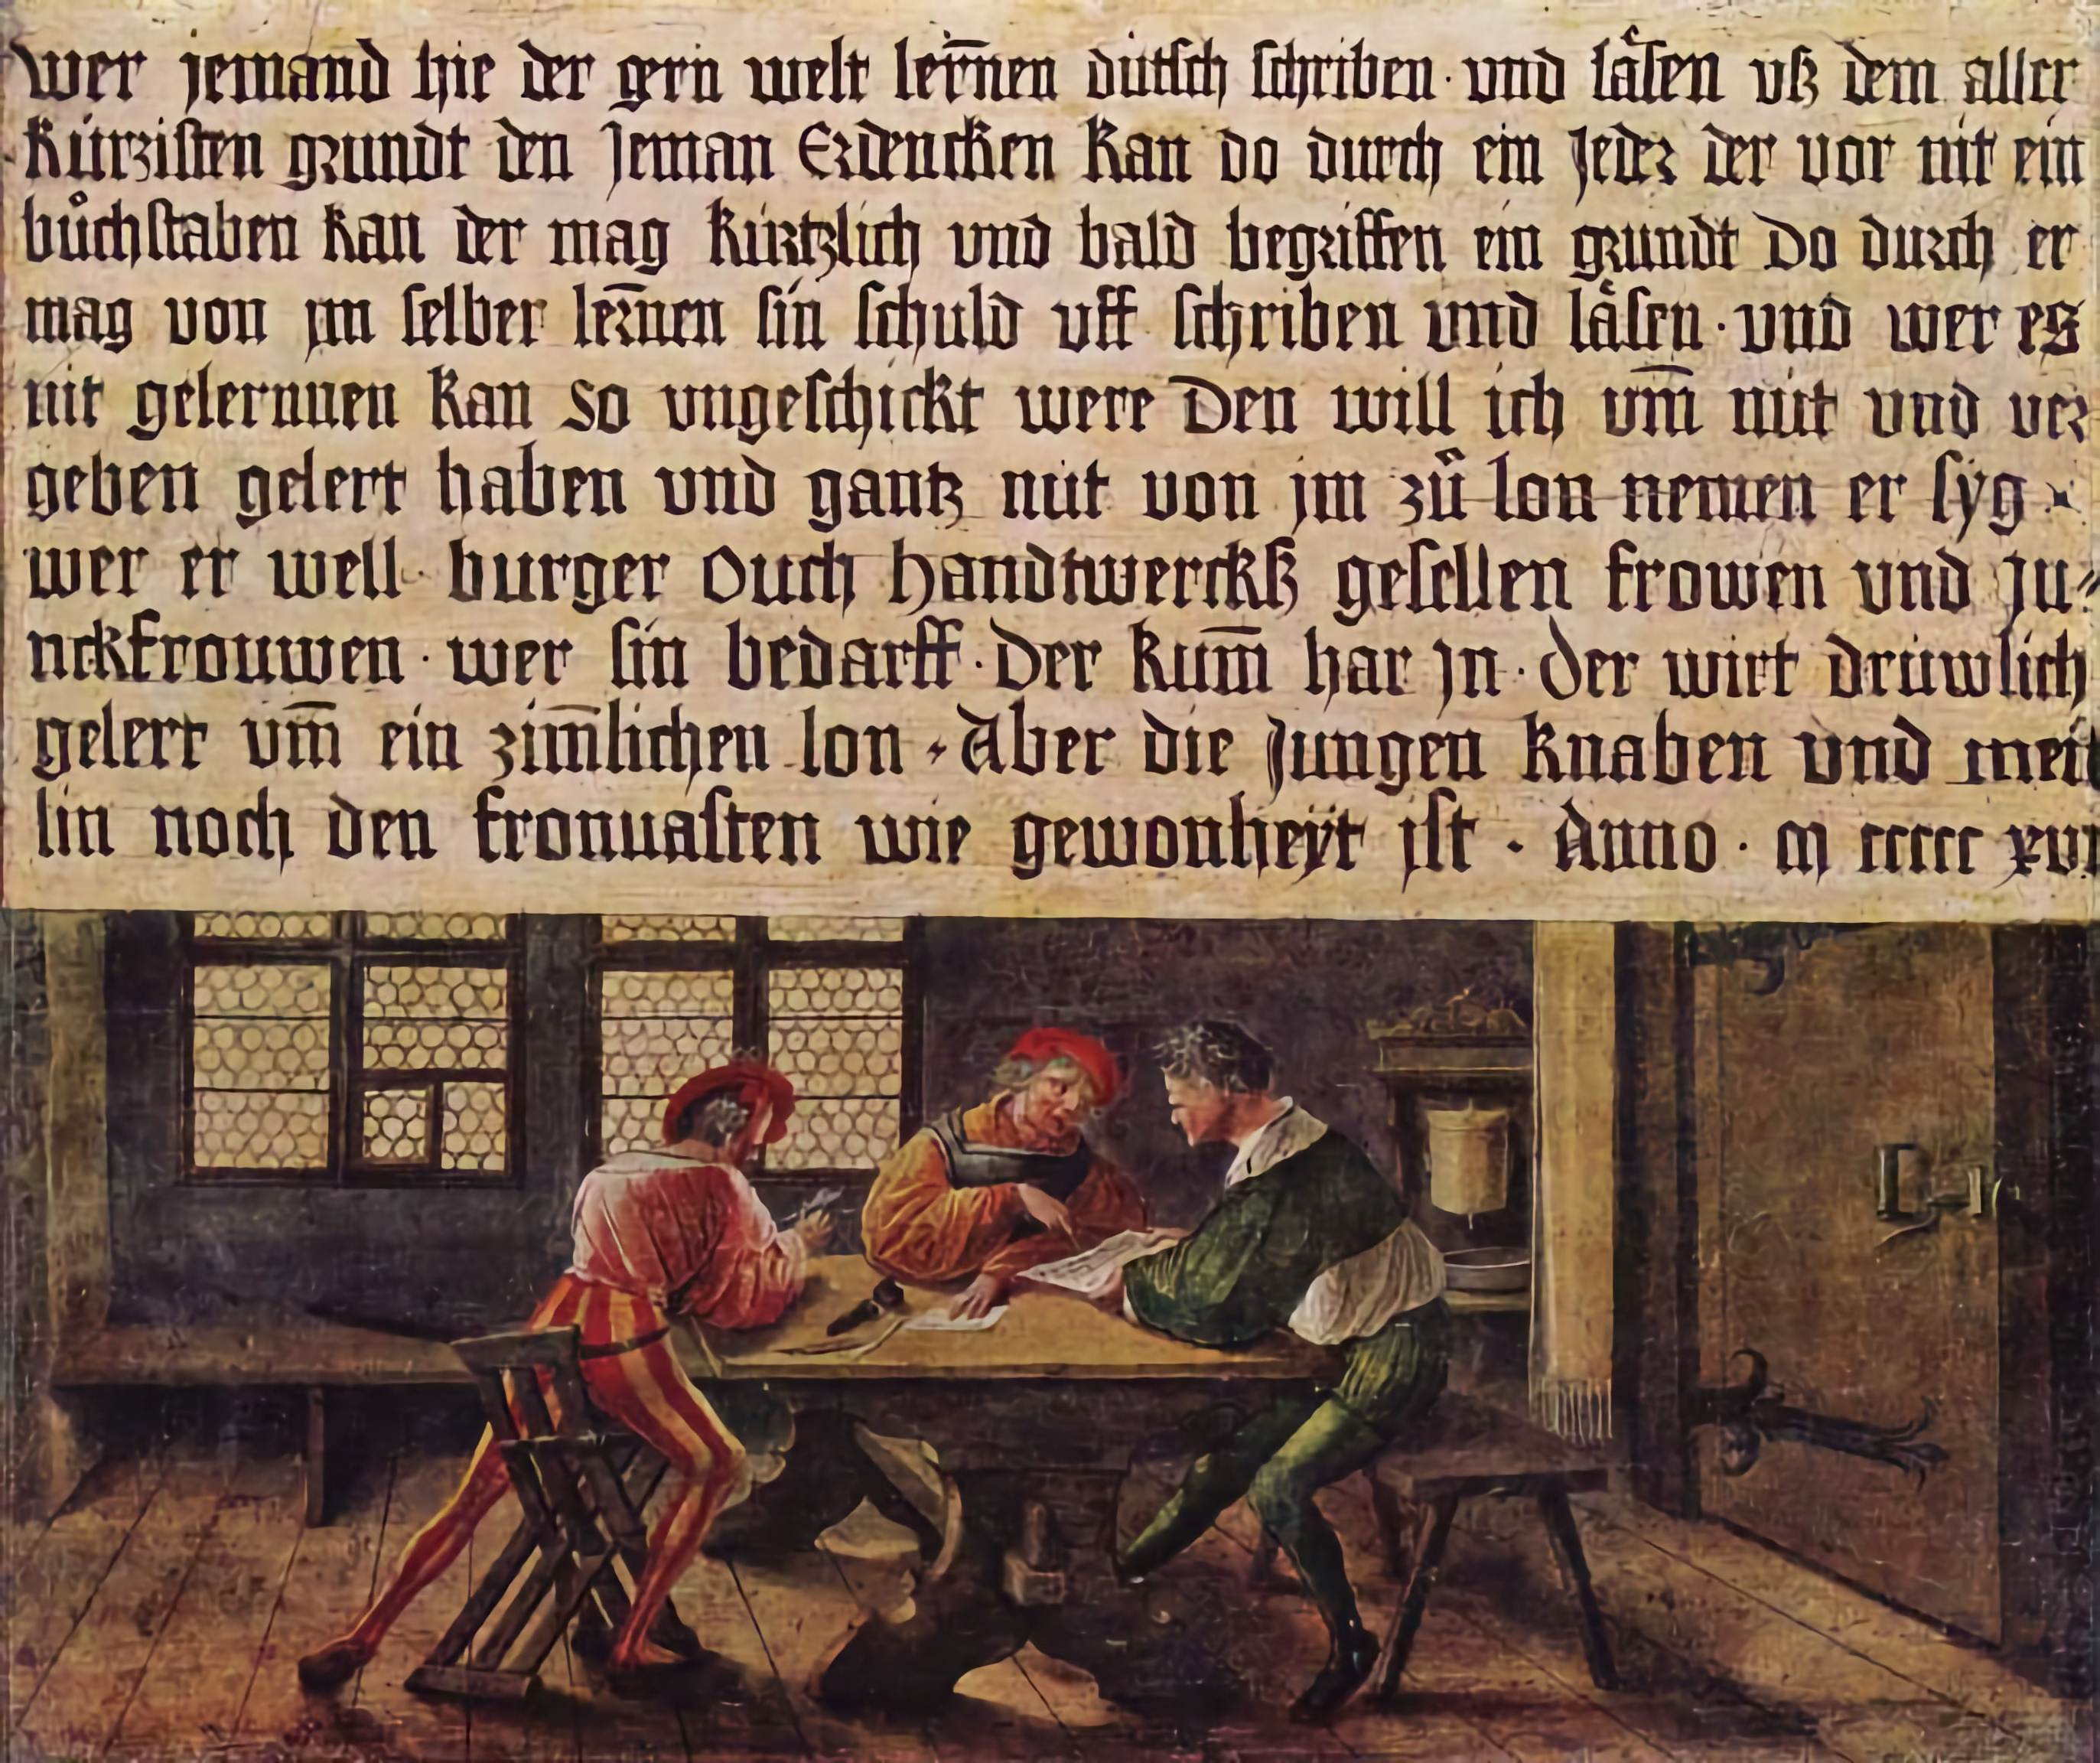 wer jemand hie der gern welt ler̄nen dütsch schriben · vnd låsen vß dem aller
kürzisten grundt den Jeman Erdencken kan do durch ein Jeder der vor nit ein
bůchstaben kan der mag kürtzlich vnd bald begriffen ein grundt Do durch er
mag von jm selber ler̄nen sin schuld vff schriben vnd låsen · vnd wer es
nit gelernnen kan so vngeschickt were Den will ich vm̄ nüt vnd ver
geben gelert haben vnd gantz nüt von jm zů lon nemen er syg
wer er well · burger ouch handtwerckß gesellen frowen vnd ju⸗
nckfrouwen · wer sin bedarff · Der kum̄ har jn · der wirt drüwlich
gelert vm̄ ein zim̄lichen lon · Aber die Jungen knaben vnd meit
lin noch den fronuasten wie gewonheÿt jst · Anno · m ccccc xvi